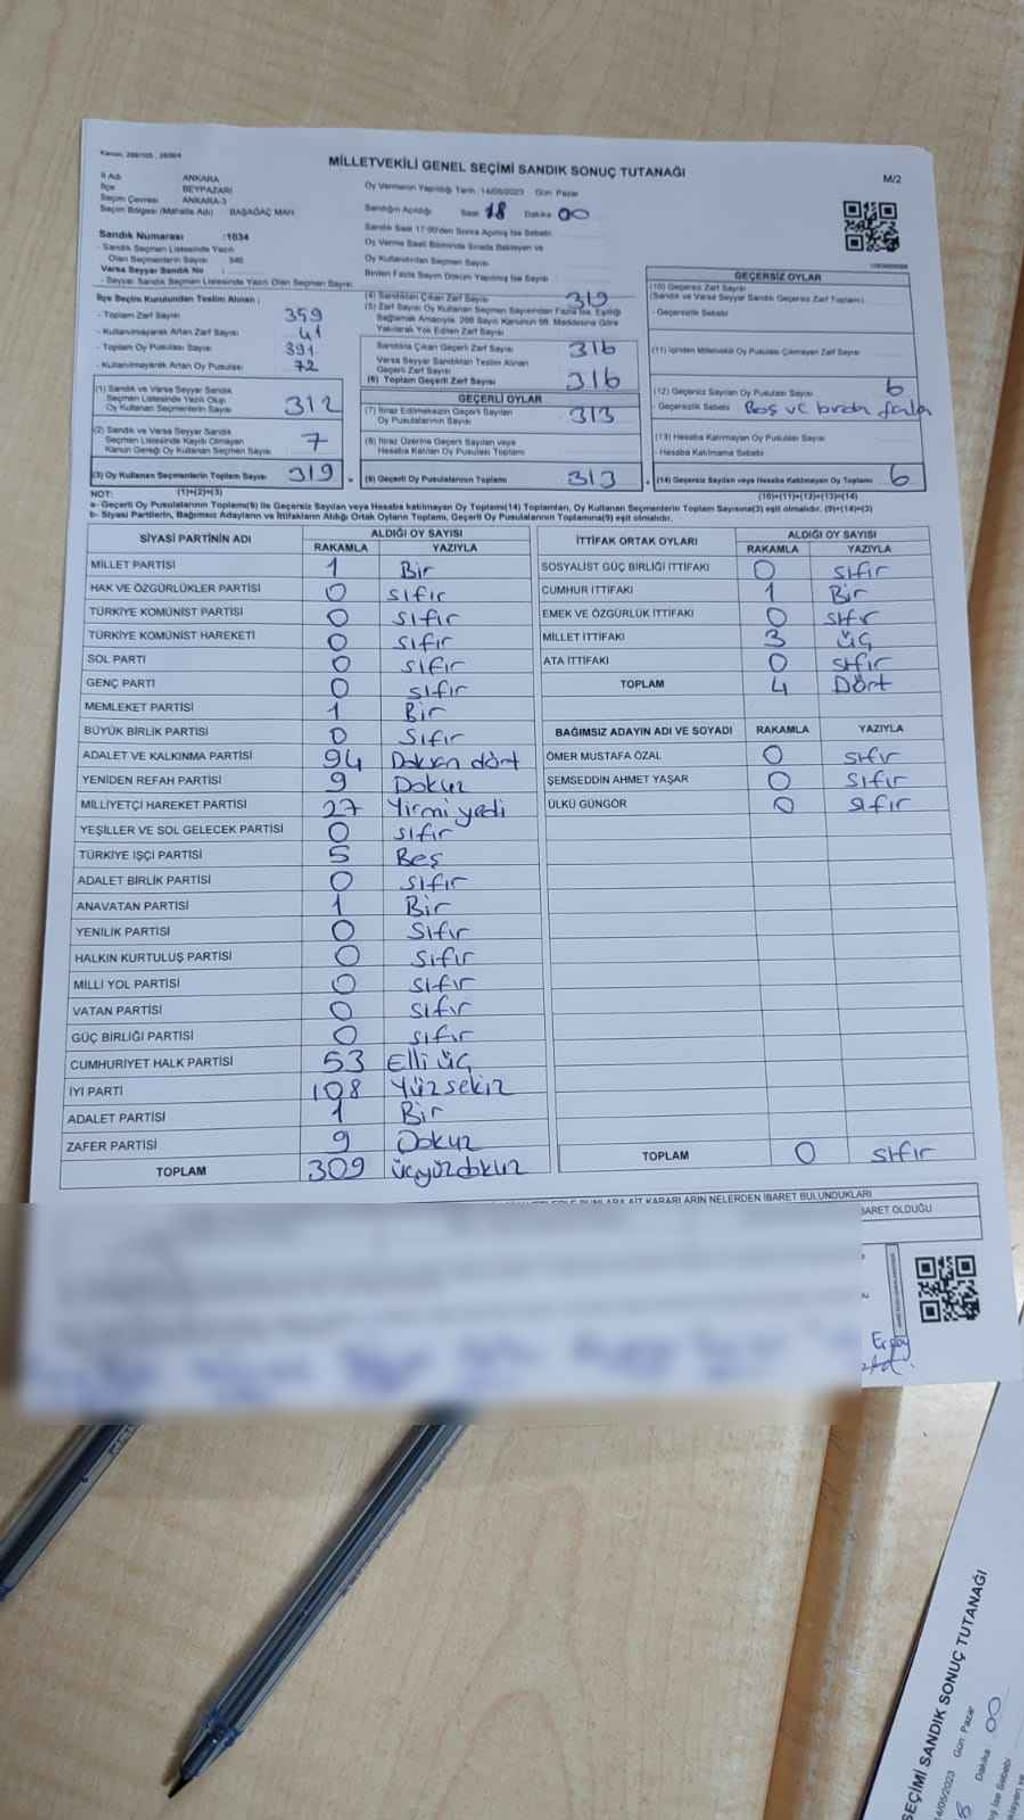 MİLLETVEKİLİ GENEL SEÇİMİ SANDIK SONUÇ TUTANAĞI
M/2
İl Adı ANKARA
İlçe BEYPAZARI
Seçim Çevresi ANKARA-3
Seçim Bölgesi (Mahalle Adı) BAŞAĞAÇ MAH
Oy Vermenin Yapıldığı Tarih 14/05/2023 Gün Pazar
Sandığın Açıldığı Saat 18 Dakika 00
Sandık Numarası :1034
- Sandık Seçmen Listesinde Yazılı
Olan Seçmenlerin Sayısı
Varsa Seyyar Sandık No
İlçe Seçim Kurulundan Teslim Alınan :
- Toplam Zarf Sayısı 359
- Kullanılmayarak Artan Zarf Sayısı 41
- Toplam Oy Pusulası Sayısı 391
- Kullanılmayarak Artan Oy Pusulası 72
(1) Sandık ve Varsa Seyyar Sandık
Seçmen Listesinde Yazılı Olup
Oy Kullanan Seçmenlerin Sayısı 312
(2) Sandık ve Varsa Seyyar Sandık
Seçmen Listesinde Kayıtlı Olmayan
Kanun Gereği Oy Kullanan Seçmen Sayısı 7
(3) Oy Kullanan Seçmenlerin Toplam Sayısı 319
(1)+(2)=(3)
(4) Sandıktan Çıkan Zarf Sayısı 319
Sandıkta Çıkan Geçerli Zarf Sayısı 316
Varsa Seyyar Sandıktan Teslim Alınan
Geçerli Zarf Sayısı
(6) Toplam Geçerli Zarf Sayısı 316
GEÇERLİ OYLAR
(7) İtiraz Edilmeksizin Geçerli Sayılan
Oy Pusulalarının Sayısı 313
(8) İtiraz Üzerine Geçerli Sayılan veya
Hesaba Katılan Oy Pusulası Toplamı
(9) Geçerli Oy Pusulalarının Toplamı 313
GEÇERSİZ OYLAR
(10) Geçersiz Zarf Sayısı
(Sandık ve Varsa Seyyar Sandık Geçersiz Zarf Toplamı)
- Geçersizlik Sebebi
(12) Geçersiz Sayılan Oy Pusulası Sayısı 6
- Geçersizlik Sebebi Boş ve birden fazla
(13) Hesaba Katılmayan Oy Pusulası Sayısı
- Hesaba Katılmama Sebebi
(14) Geçersiz Sayılan veya Hesaba Katılmayan Oy Toplamı 6
(10)+(11)+(12)+(13)=(14)
NOT:
a- Geçerli Oy Pusulalarının Toplamı(9) ile Geçersiz Sayılan veya Hesaba katılmayan Oy Toplamı(14) Toplamları, Oy Kullanan Seçmenlerin Toplam Sayısına(3) eşit olmalıdır. (9)+(14)=(3)
b- Siyasi Partilerin, Bağımsız Adayların ve İttifakların Aldığı Ortak Oyların Toplamı, Geçerli Oy Pusulalarının Toplamına(9) eşit olmalıdır.
SİYASİ PARTİNİN ADI ALDIĞI OY SAYISI
RAKAMLA YAZIYLA
MİLLET PARTİSİ 1 Bir
HAK VE ÖZGÜRLÜKLER PARTİSİ 0 sıfır
TÜRKİYE KOMÜNİST PARTİSİ 0 sıfır
TÜRKİYE KOMÜNİST HAREKETİ 0 sıfır
SOL PARTİ 0 sıfır
GENÇ PARTİ 0 sıfır
MEMLEKET PARTİSİ 1 Bir
BÜYÜK BİRLİK PARTİSİ 0 Sıfır
ADALET VE KALKINMA PARTİSİ 94 Doksan dört
YENİDEN REFAH PARTİSİ 9 Dokuz
MİLLİYETÇİ HAREKET PARTİSİ 27 Yirmi yedi
YEŞİLLER VE SOL GELECEK PARTİSİ 0 sıfır
TÜRKİYE İŞÇİ PARTİSİ 5 Beş
ADALET BİRLİK PARTİSİ 0 sıfır
ANAVATAN PARTİSİ 1 Bir
YENİLİK PARTİSİ 0 Sıfır
HALKIN KURTULUŞ PARTİSİ 0 Sıfır
MİLLİ YOL PARTİSİ 0 sıfır
VATAN PARTİSİ 0 sıfır
GÜÇ BİRLİĞİ PARTİSİ 0 sıfır
CUMHURİYET HALK PARTİSİ 53 Elli üç
İYİ PARTİ 108 Yüzsekiz
ADALET PARTİSİ 1 Bir
ZAFER PARTİSİ 9 Dokuz
TOPLAM 309 üçyüzdokuz
İTTİFAK ORTAK OYLARI ALDIĞI OY SAYISI
RAKAMLA YAZIYLA
SOSYALİST GÜÇ BİRLİĞİ İTTİFAKI 0 sıfır
CUMHUR İTTİFAKI 1 Bir
EMEK VE ÖZGÜRLÜK İTTİFAKI 0 sıfır
MİLLET İTTİFAKI 3 üç
ATA İTTİFAKI 0 sıfır
TOPLAM 4 Dört
BAĞIMSIZ ADAYIN ADI VE SOYADI RAKAMLA YAZIYLA
ÖMER MUSTAFA ÖZAL 0 sıfır
ŞEMSEDDİN AHMET YAŞAR 0 sıfır
ÜLKÜ GÜNGÖR 0 sıfır
TOPLAM 0 sıfır
KARARLARIN NELERDEN İBARET BULUNDUKLARI
BARET OLDUĞU
SEÇİMİ SANDIK SONUÇ TUTANAĞI
/05/2023 Gün Pazar
Dakika 00